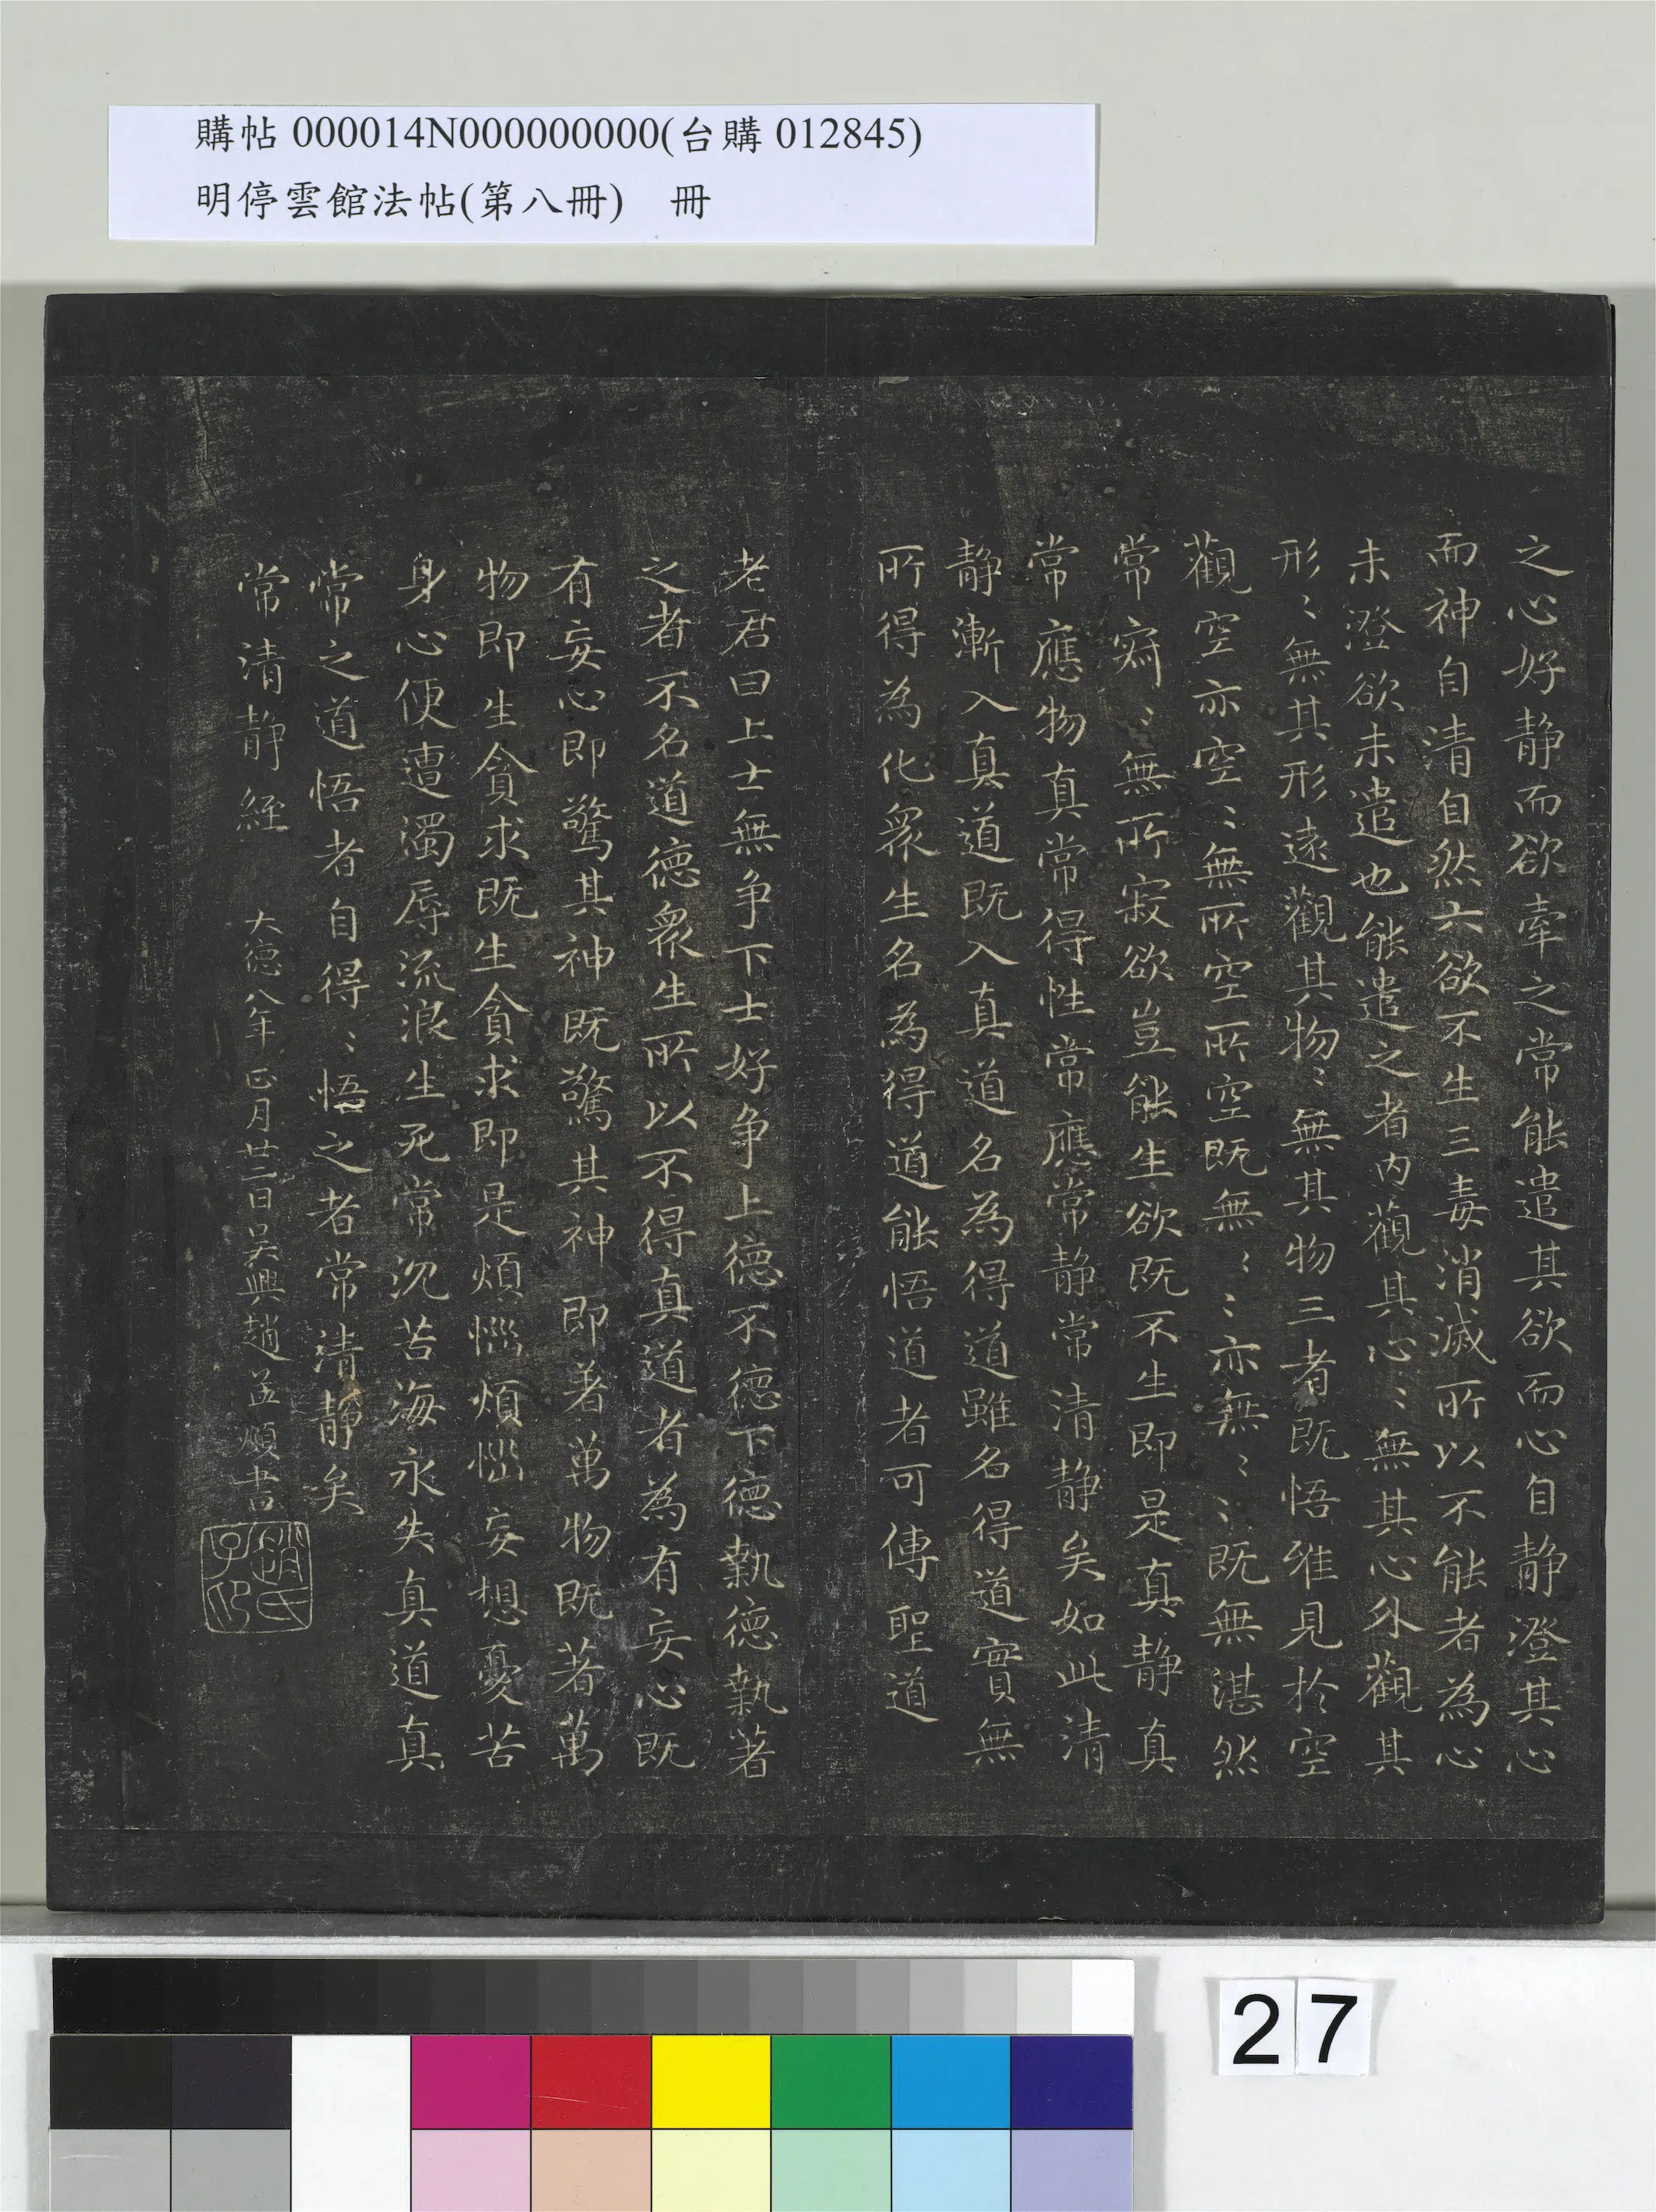 購帖 000014N000000000(台購 012845)
明停雲館法帖(第八冊) 冊
之心好静而欲牽之常能遣其欲而心自静澄其心
而神自清自然六欲不生三毒消滅所以不能者為心
未澄欲未遣也能遣之者内觀其心〻無其心外觀其
形〻無其形遠觀其物〻無其物三者既悟唯見於空
觀空亦空〻無所空所空既無〻〻亦無〻〻既無湛然
常寂〻無所寂欲豈能生欲既不生即是真静真
常應物真常得性常應常静常清静矣如此清
静漸入真道既入真道名為得道雖名得道實無
所得為化衆生名為得道能悟道者可傳聖道
老君曰上士無争下士好争上德不德下德執德執著
之者不名道德衆生所以不得真道者為有妄心既
有妄心即驚其神既驚其神即著萬物既著萬
物即生貪求既生貪求即是煩惱煩惱妄想憂苦
身心便遭濁辱流浪生死常沉苦海永失真道真
常之道悟者自得〻悟之者常清静矣
常清静經 大德八年正月廿二日吴興趙孟頫書
趙氏子印
27